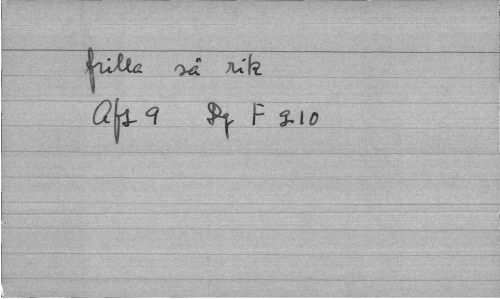 frilla så rik
Afz 9 Dq F 210